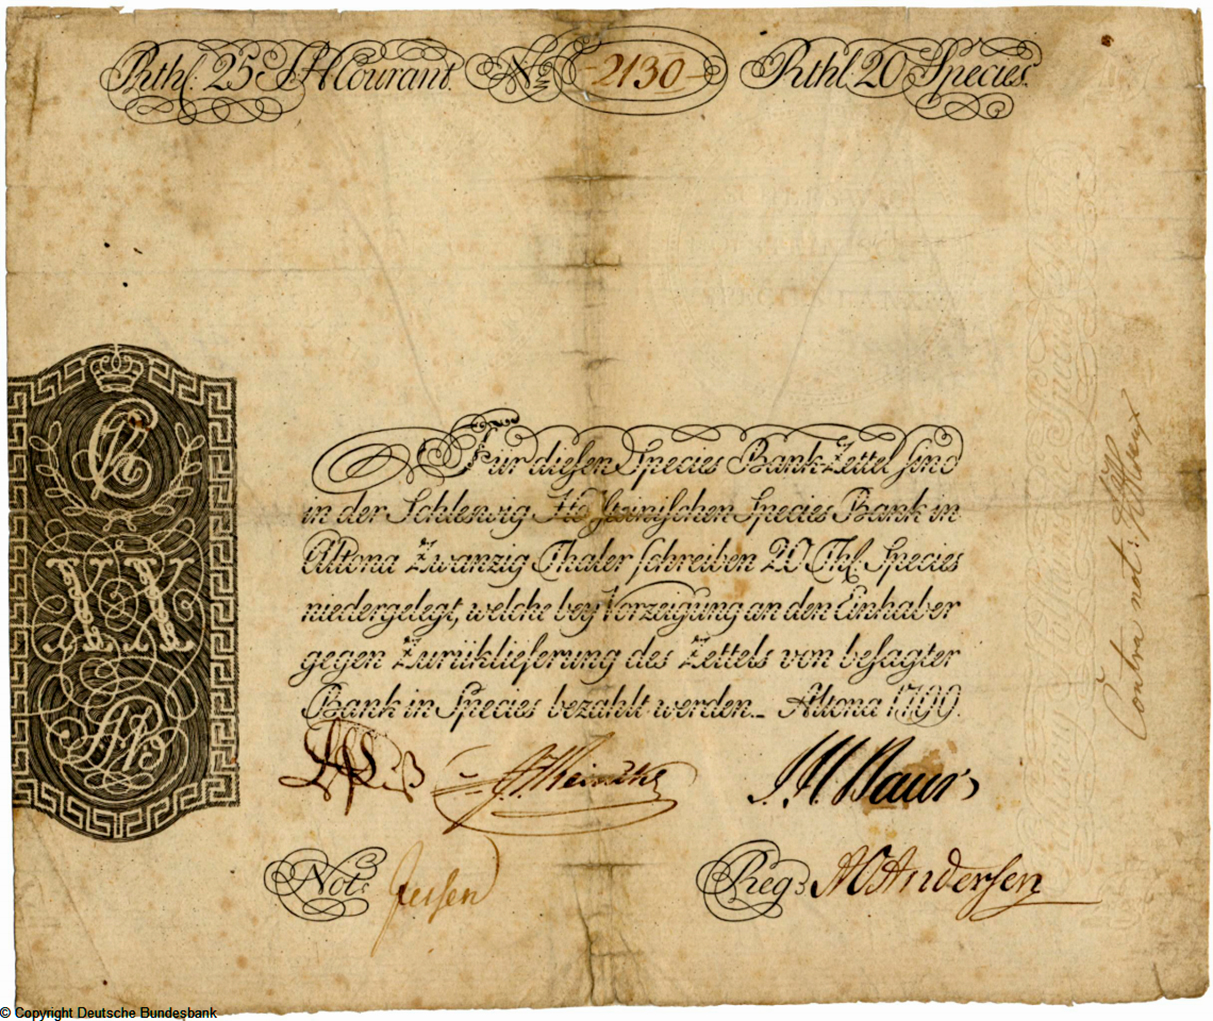 Rthl. 25 S.H. Courant. No. -2130- Rthl. 20 Species.
Für diesen Species Bank-Zettel sind
in der Schleswig Holsteinischen Species Bank in
Altona Zwanzig Thaler schreiben 20 Thl. Species
niedergelegt, welche bey Vorzeigung an den Einhaber
gegen Zurüklieferung des Zettels von besagter
Bank in Species bezahlt werden._ Altona 1799.
CR
VII
XX
SHB
J.H. Baur
Not:
Jessen
Reg:
Andersen
Contra not:
Species
© Copyright Deutsche Bundesbank